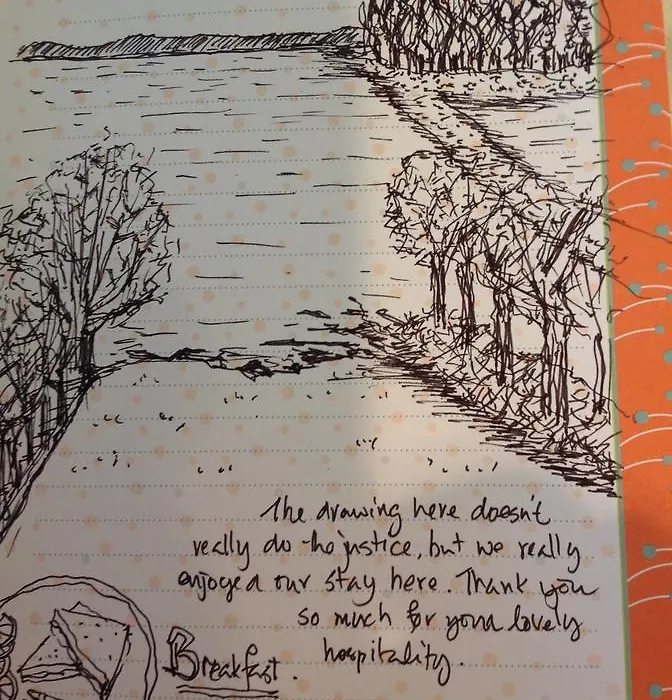 The drawing here doesn't
really do the justice, but we really
enjoyed our stay here. Thank you
so much for your lovely
hospitality.
Breakfast.